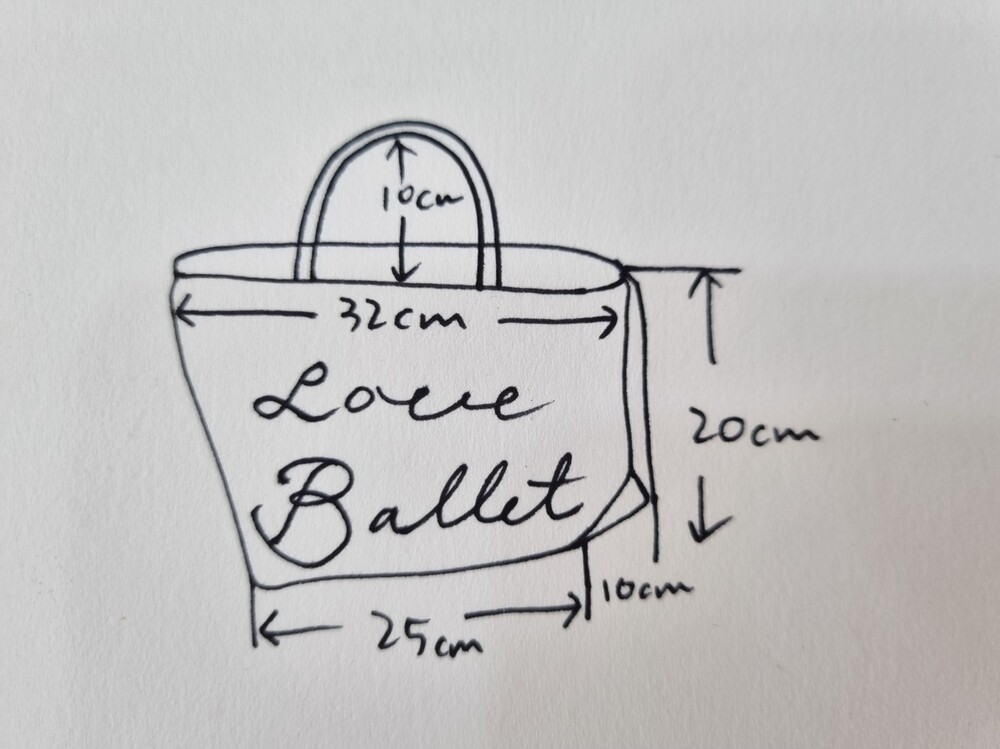 10cm
32cm
Love
Ballet
20cm
10cm
25cm